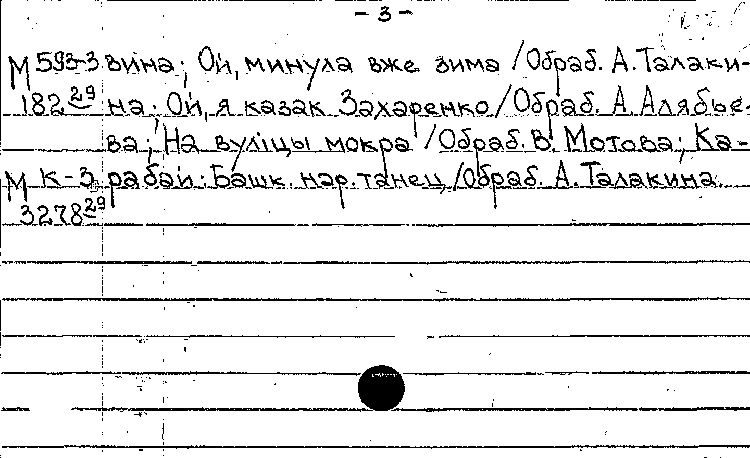 - 3 -
М 593-3 вина; Ой, минула вже зима / Обраб. А. Талаки-
182 29 на; Ой, я казак Захаренко / Обраб. А. Алябье-
ва; На вуліцы мокра / Обраб. В. Мотова; Ка-
М К-3 рабай: Башк. нар. танец / Обраб. А. Талакина.
3278 29